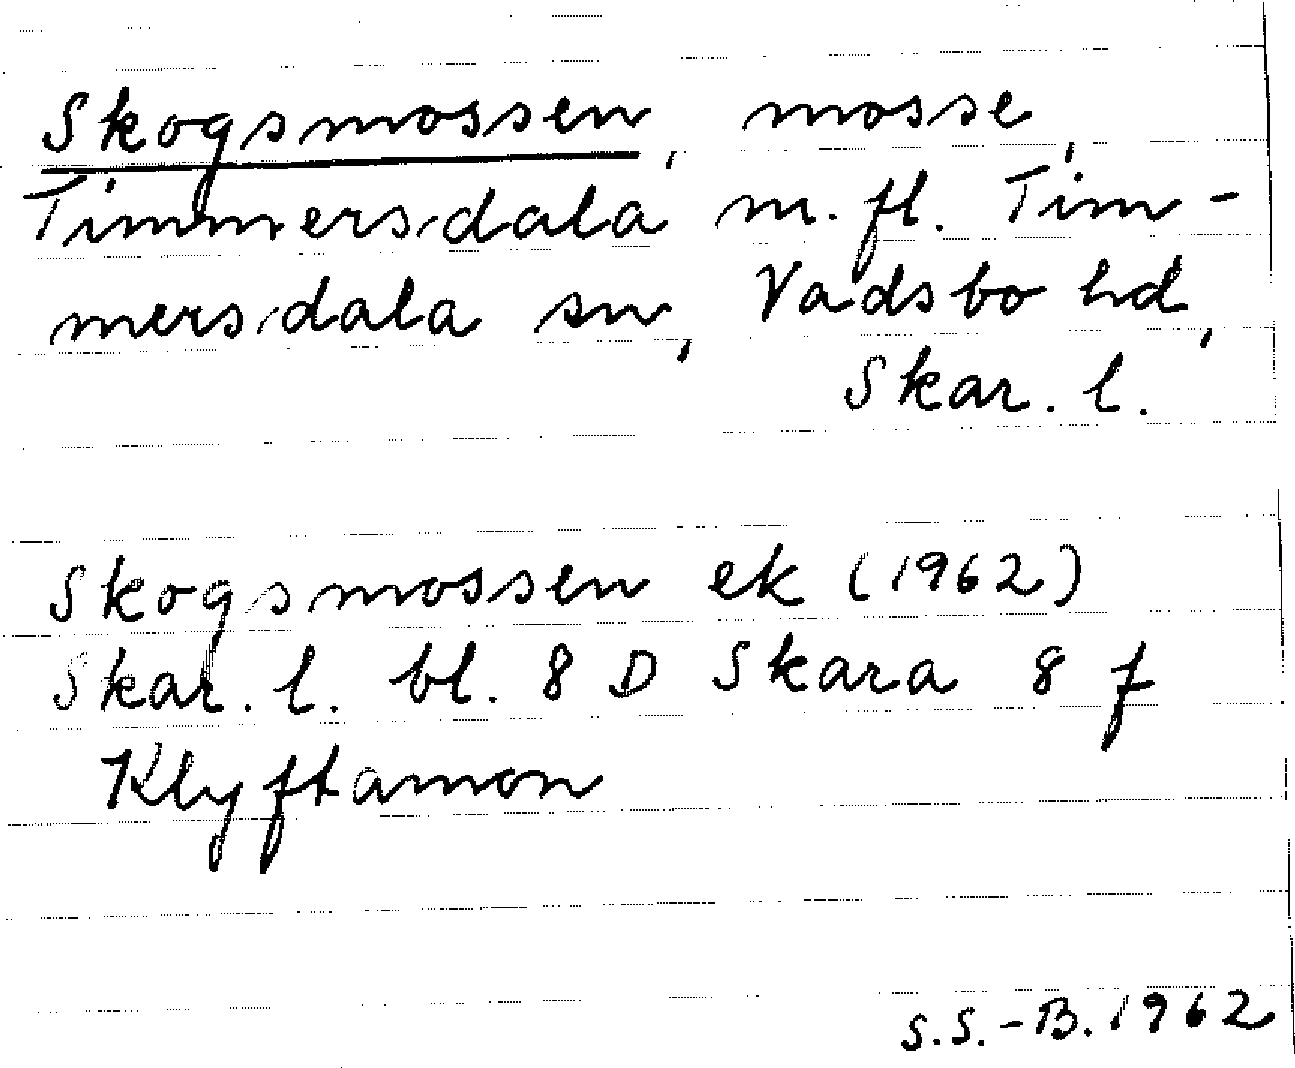 Skogsmossen, mosse,
Timmersdala m.fl. Tim-
mersdala sn, Vadsbo hd,
Skar. l.
Skogsmossen ek (1962)
Skar. l. bl. 8 D Skara 8 f
Klyftamon
S.S.-B. 1962